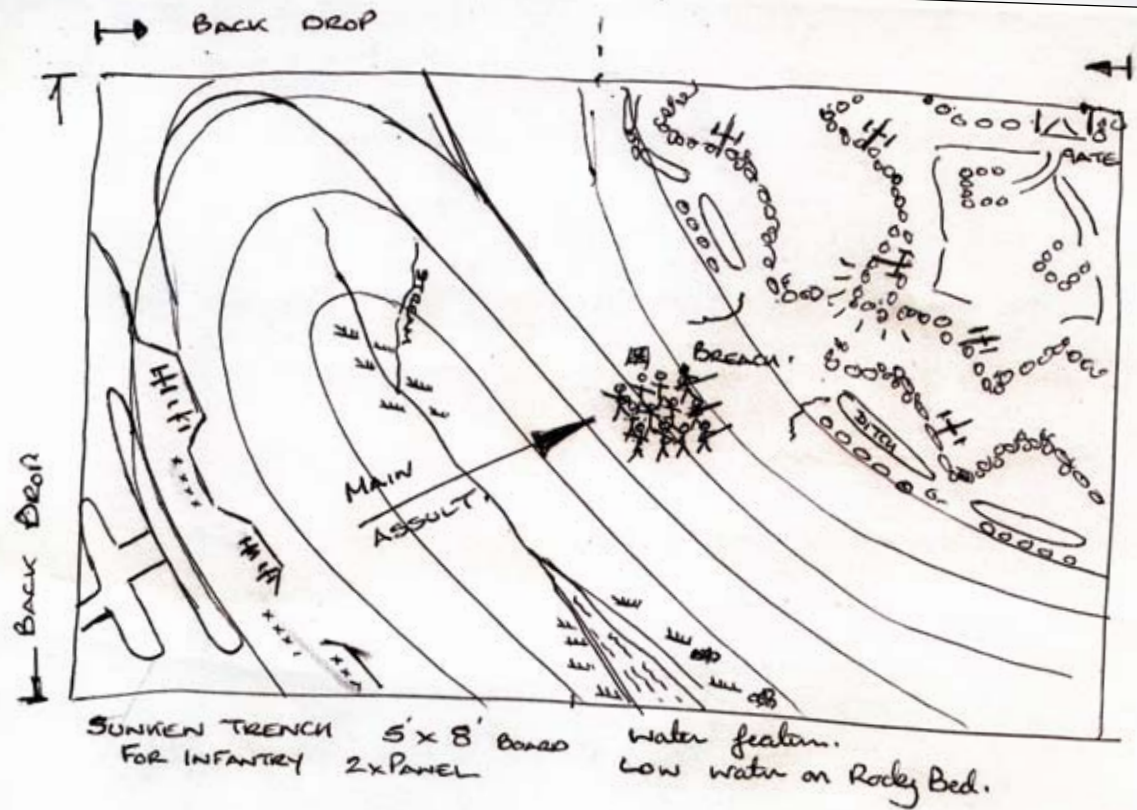 BACK DROP
GATE
STREAM
BREACH.
DITCH
MAIN
ASSULT
BACK DROP
SUNKEN TRENCH
FOR INFANTRY
5' x 8' BOARD
2xPANEL
Water feature.
LOW water on Rocky Bed.